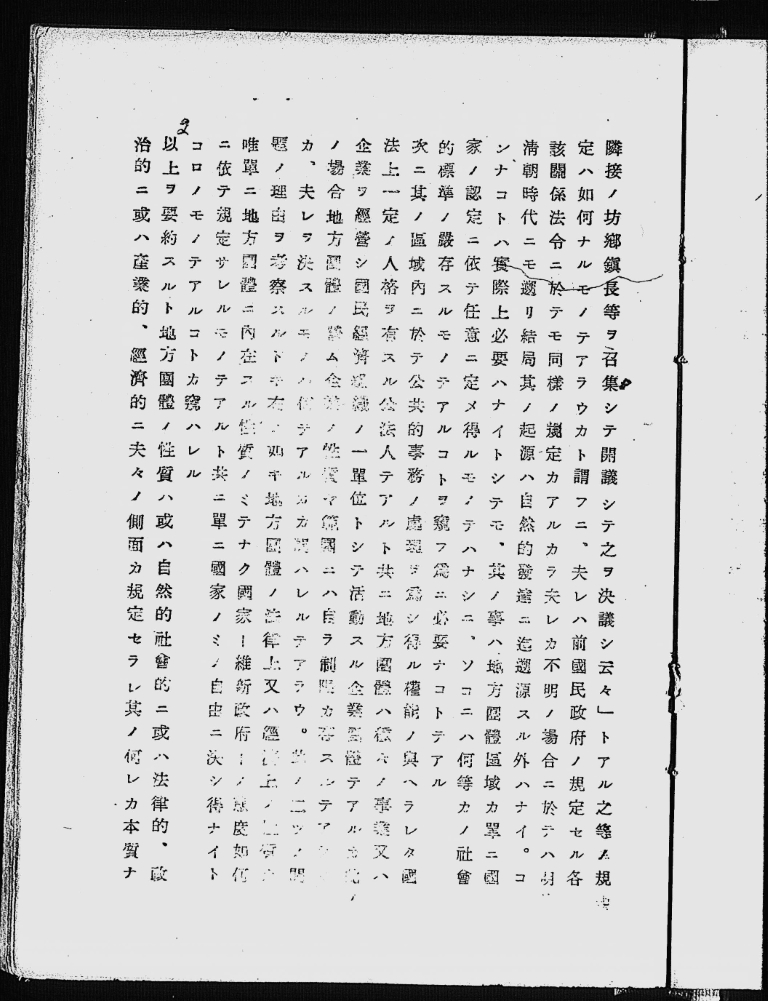 隣接ノ坊鄉鎭長等ヲ召集シテ開議シテ之ヲ決議シ云々」トアル之等ノ規
定ハ如何ナルモノテアラウカト謂フニ、夫レハ前國民政府ノ規定セル各
該關係法令ニ於テモ同樣ノ規定カアルカラ夫レカ不明ノ場合ニ於テハ
清朝時代ニモ遡リ結局其ノ起源ハ自然的發達ニ迄遡源スル外ハナイ。コ
シナコトハ實際上必要ハナイトシテモ、其ノ事ハ地方團體區域カ單ニ國
家ノ認定ニ依テ任意ニ定メ得ルモノテハナシニ、ソコニハ何等カノ社會
的標準ノ嚴存スルモノテアルコトヲ窺フ爲ニ必要ナコトテアル
次ニ其ノ區域內ニ於テ公共的事務ノ處理ヲ爲シ得ル權能ノ與ヘラレタ國
法上一定ノ人格ヲ有スル公法人テアルト共ニ地方團體ハ種々ノ事業又ハ
企業ヲ經營シ國民經濟組織ノ一單位トシテ活動スル企業團體テアルカ
ノ場合地方團體ノ營ム企業ノ性質ヤ範圍ニハ自ラ制限カ存スルテア
カ、夫レヲ決スルモノハ何テアルカカ問ハレルテアラウ。此ノ二ツノ問
題ノ理由ヲ考察スルトキ右ノ如キ地方團體ノ法律上又ハ經濟上ノ性質カ
唯單ニ地方團體ニ內在スル性質ノミテナク國家ー維新政府ーノ態度如何
ニ依テ規定サレルモノテアルト共ニ單ニ國家ノミノ自由ニ決シ得ナイト
コロノモノテアルコトカ窺ハレル
以上ヲ要約スルト地方團體ノ性質ハ或ハ自然的社會的ニ或ハ法律的、政
治的ニ或ハ產業的、經濟的ニ夫々ノ側面カ規定セラレ其ノ何レカ本質ナ
2